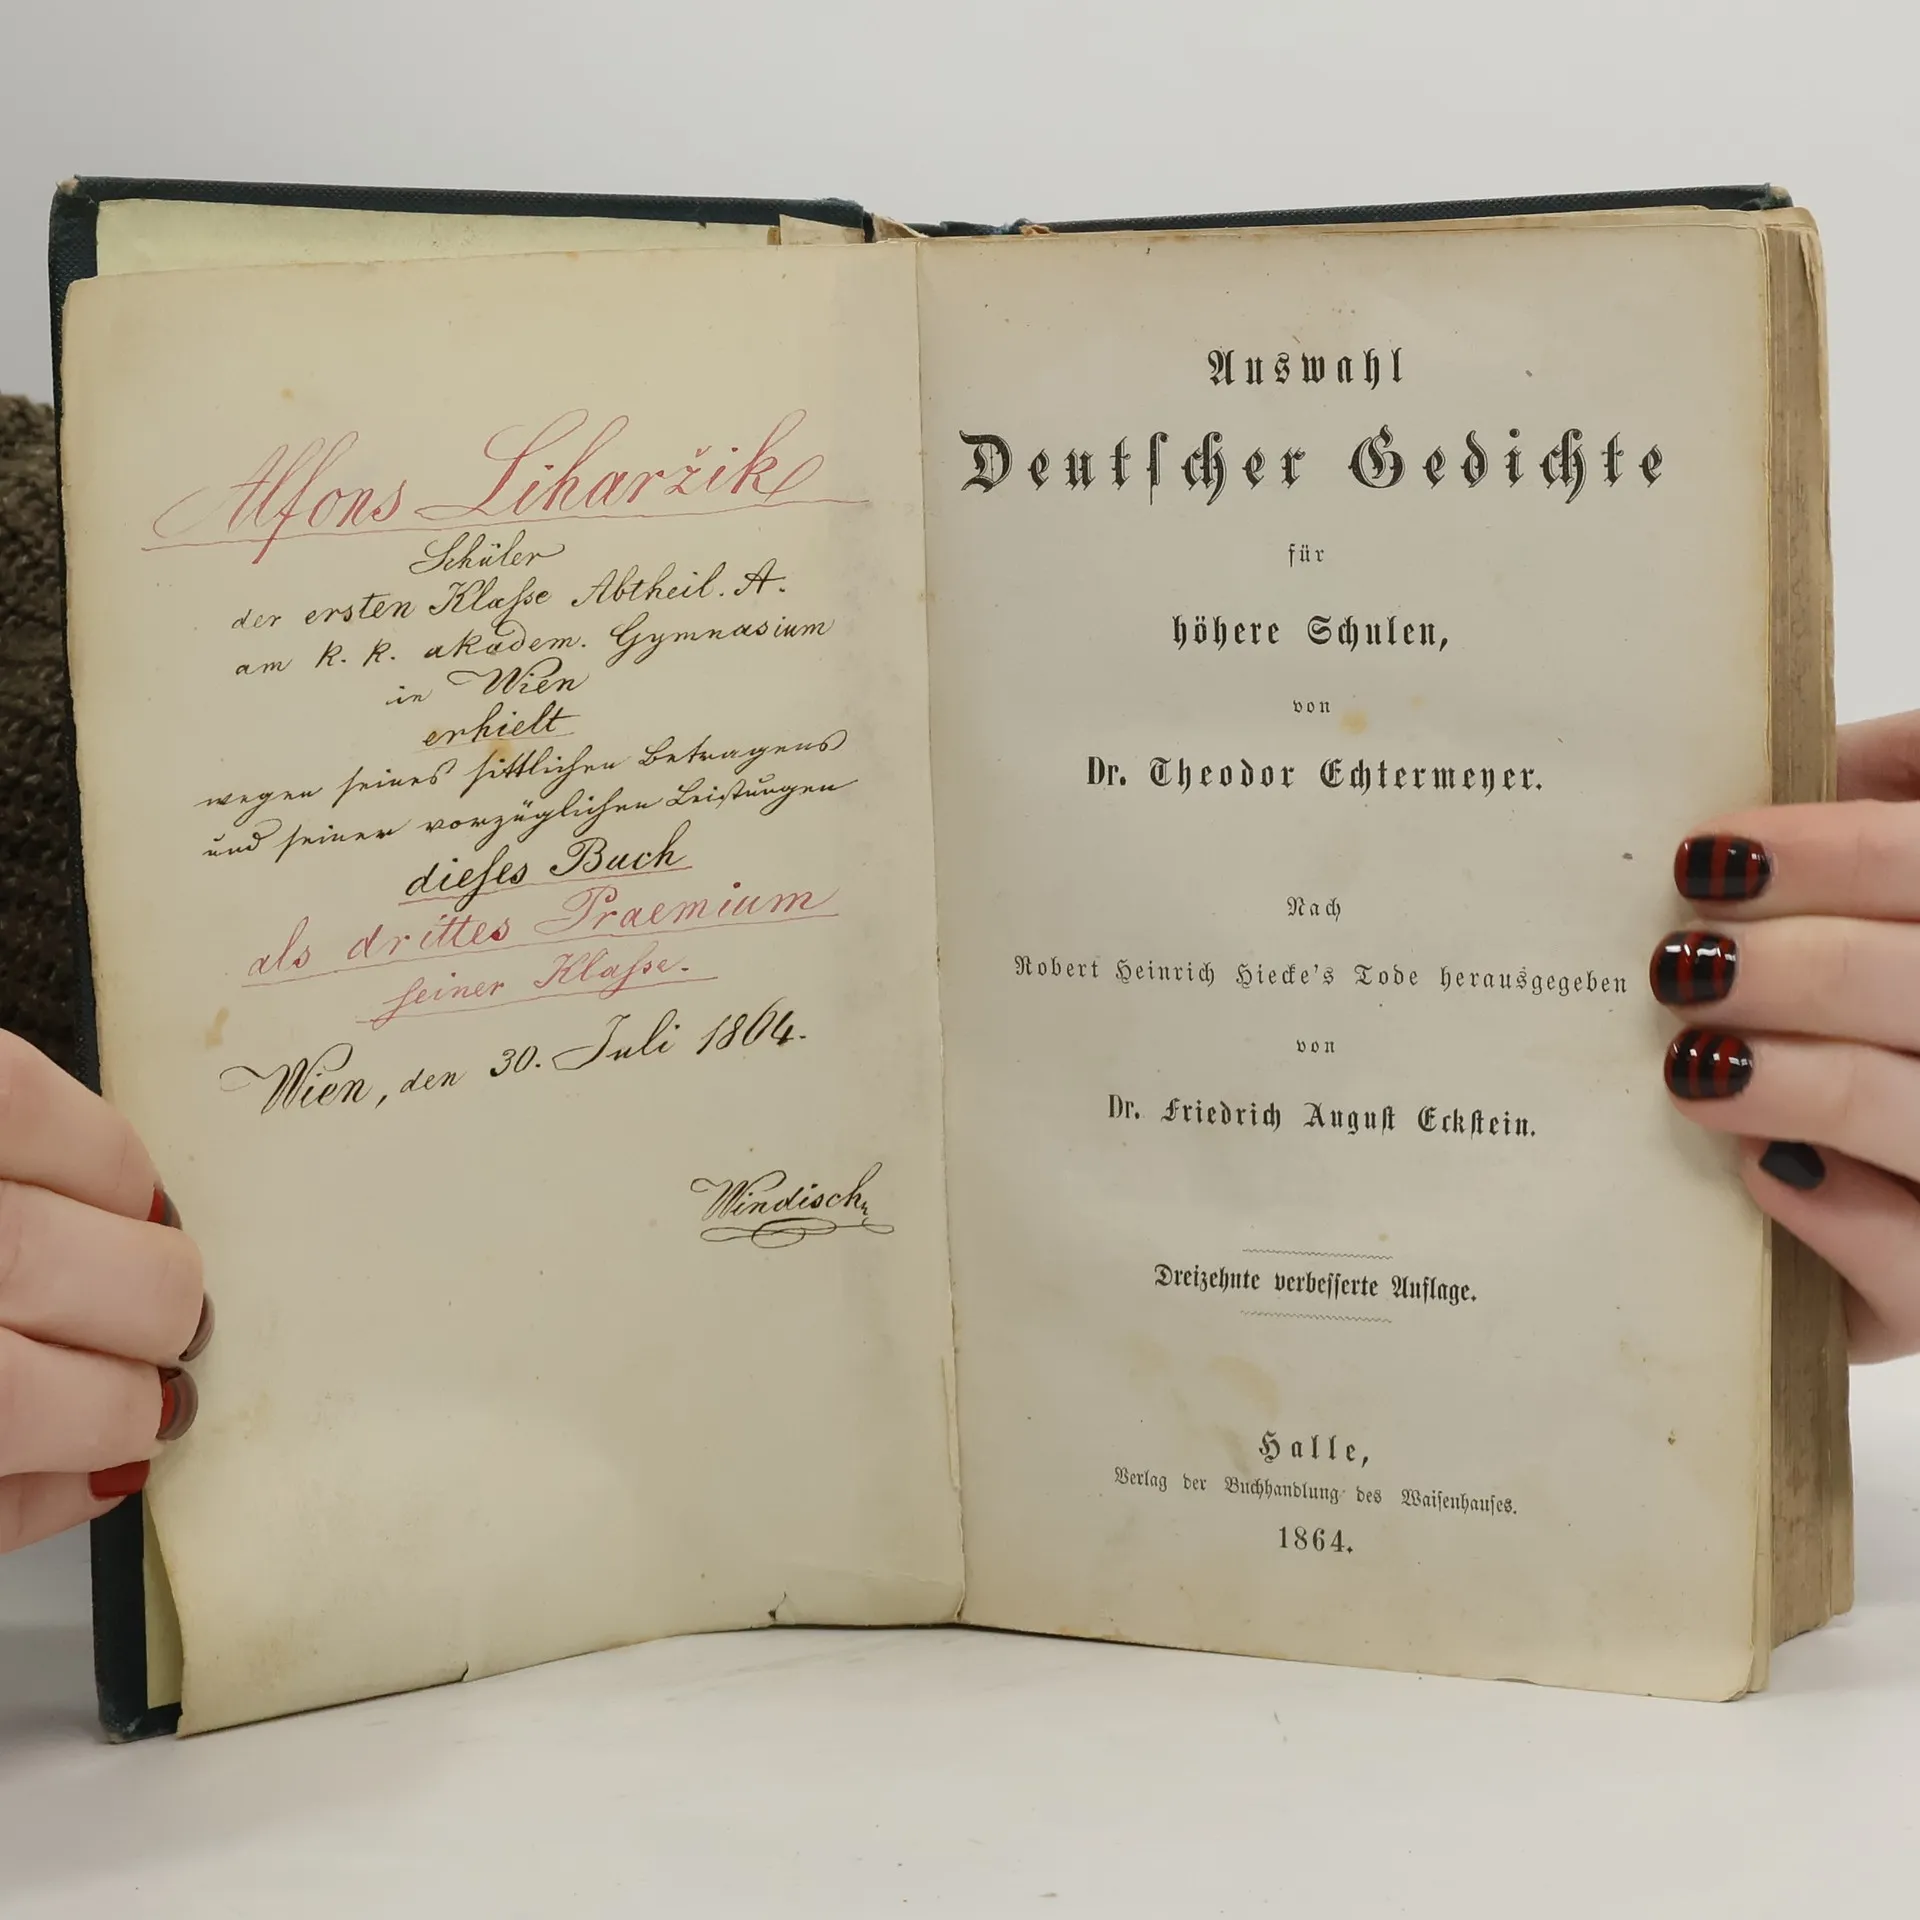 Alfons Liharžik
Schüler
der ersten Klaſse Abtheil. A.
am k. k. akadem. Gymnasium
in Wien
erhielt
wegen ſeines ſittlichen Betragens
und ſeiner vorzüglichen Leiſtungen
dieſes Buch
als drittes Praemium
ſeiner Klaſse.
Wien, den 30. Juli 1864.
Windisch
Auswahl
Deutſcher Gedichte
für
höhere Schulen,
von
Dr. Theodor Echtermeyer.
Nach
Robert Heinrich Hiecke's Tode herausgegeben
von
Dr. Friedrich Auguſt Eckſtein.
Dreizehnte verbeſſerte Auflage.
Halle,
Verlag der Buchhandlung des Waiſenhauſes.
1864.